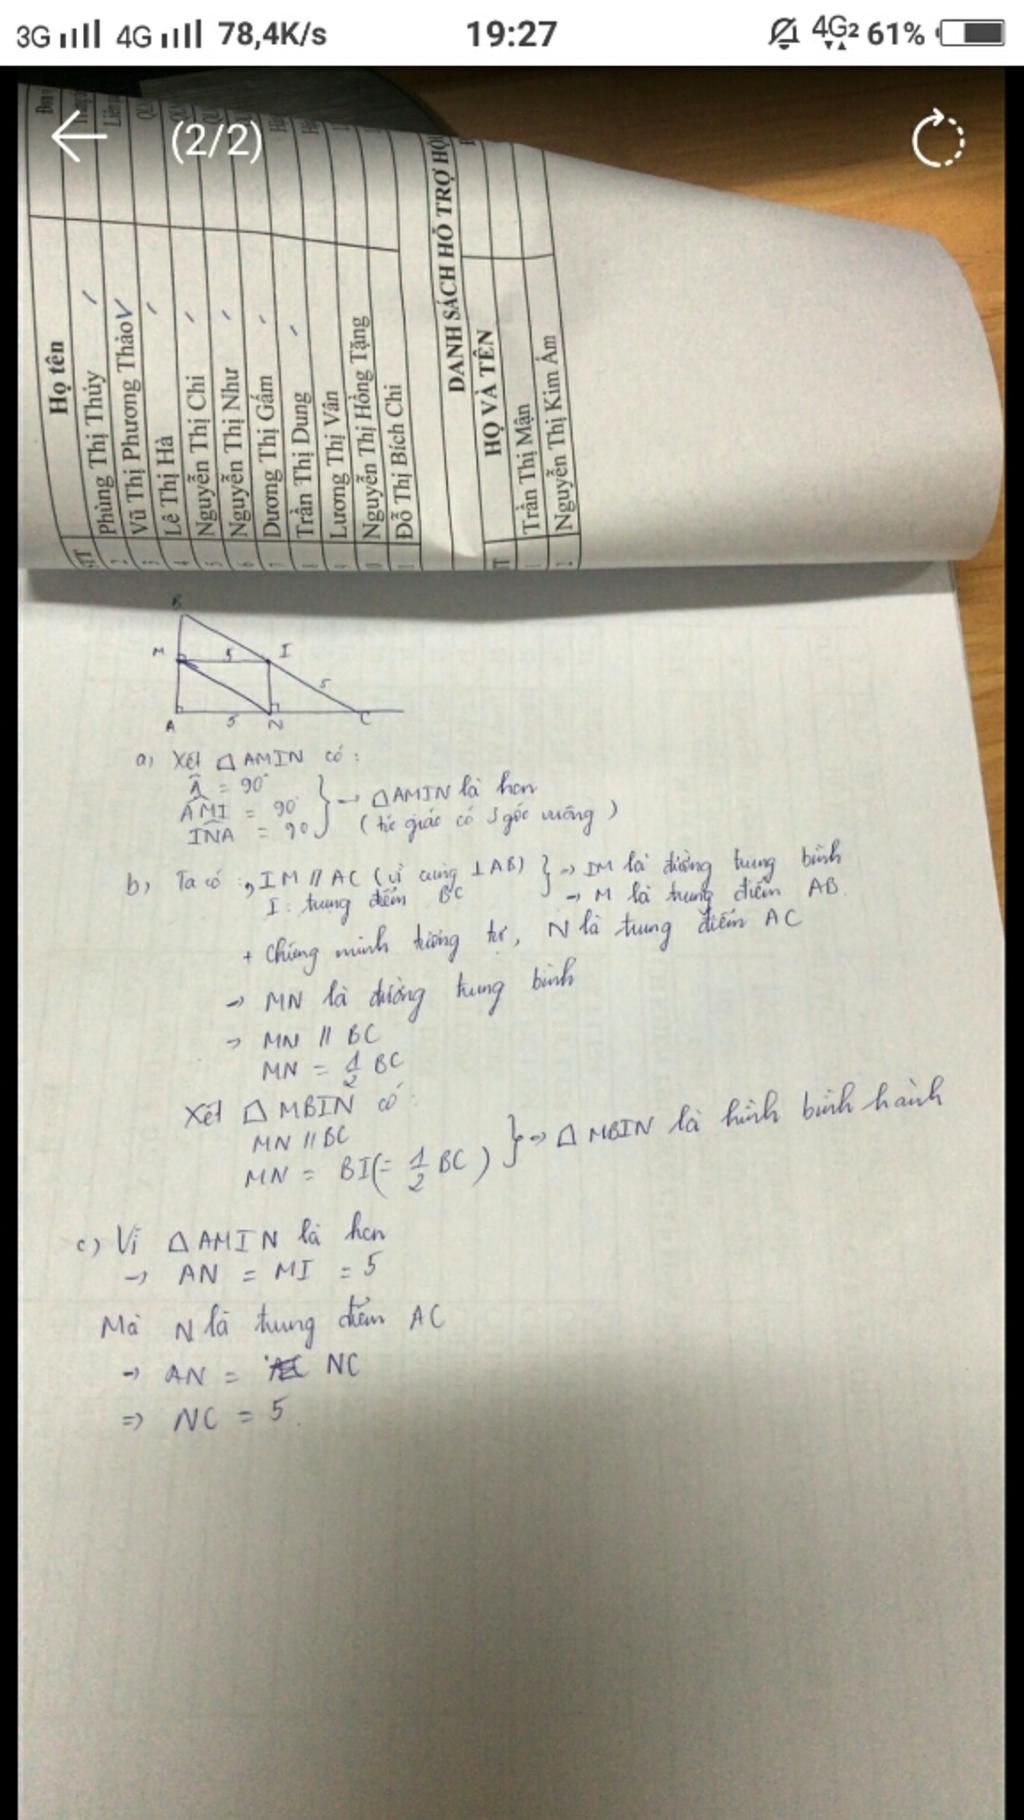 3G 4G 78,4K/s 19:27 4G2 61%
(2/2)
Họ tên
Phùng Thị Thủy
Vũ Thị Phương Thảo
Lê Thị Hà
Nguyễn Thị Chi
Nguyễn Thị Như
Dương Thị Gấm
Trần Thị Dung
Lương Thị Vân
Nguyễn Thị Hồng Tặng
Đỗ Thị Bích Chi
DANH SÁCH HỖ TRỢ HỘI
HỌ VÀ TÊN
1 Trần Thị Mận
2 Nguyễn Thị Kim Âm
B
M 5 I
5
A 5 N C
a) Xét △ AMIN có:
Â = 90°
AMI = 90° } → △ AMIN là hcn
INA = 90 (tứ giác có 3 góc vuông)
b) Ta có: IM // AC (vì cùng ⊥ AB) } → IM là đường trung bình
I: trung điểm BC → M là trung điểm AB.
+ Chứng minh tương tự, N là trung điểm AC
→ MN là đường trung bình
→ MN // BC
MN = 1/2 BC
Xét △ MBIN có:
MN // BC
MN = BI (= 1/2 BC) } → △ MBIN là hình bình hành
c) Vì △ AMIN là hcn
→ AN = MI = 5
Mà N là trung điểm AC
→ AN = NC
⇒ NC = 5.